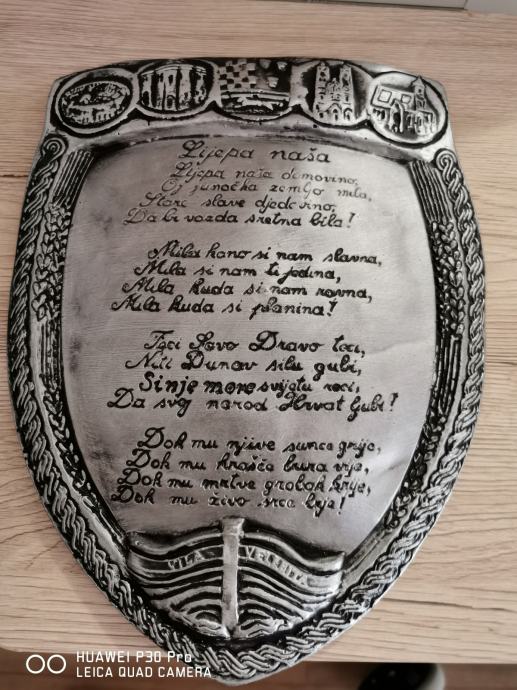 Lijepa naša
Lijepa naša domovino,
Oj junačka zemljo mila,
Stare slave djedovino,
Da bi vazda sretna bila!
Mila kano si nam slavna,
Mila si nam ti jedina,
Mila kuda si nam ravna,
Mila kuda si planina!
Teci Savo Dravo teci,
Niti Dunav silu gubi,
Sinje more svijetu reci,
Da svoj narod Hrvat ljubi!
Dok mu njive sunce grije,
Dok mu hrašće bura vije,
Dok mu mrtve grobak krije,
Dok mu živo srce bije!
VILA VELEBITA
HUAWEI P30 Pro
LEICA QUAD CAMERA